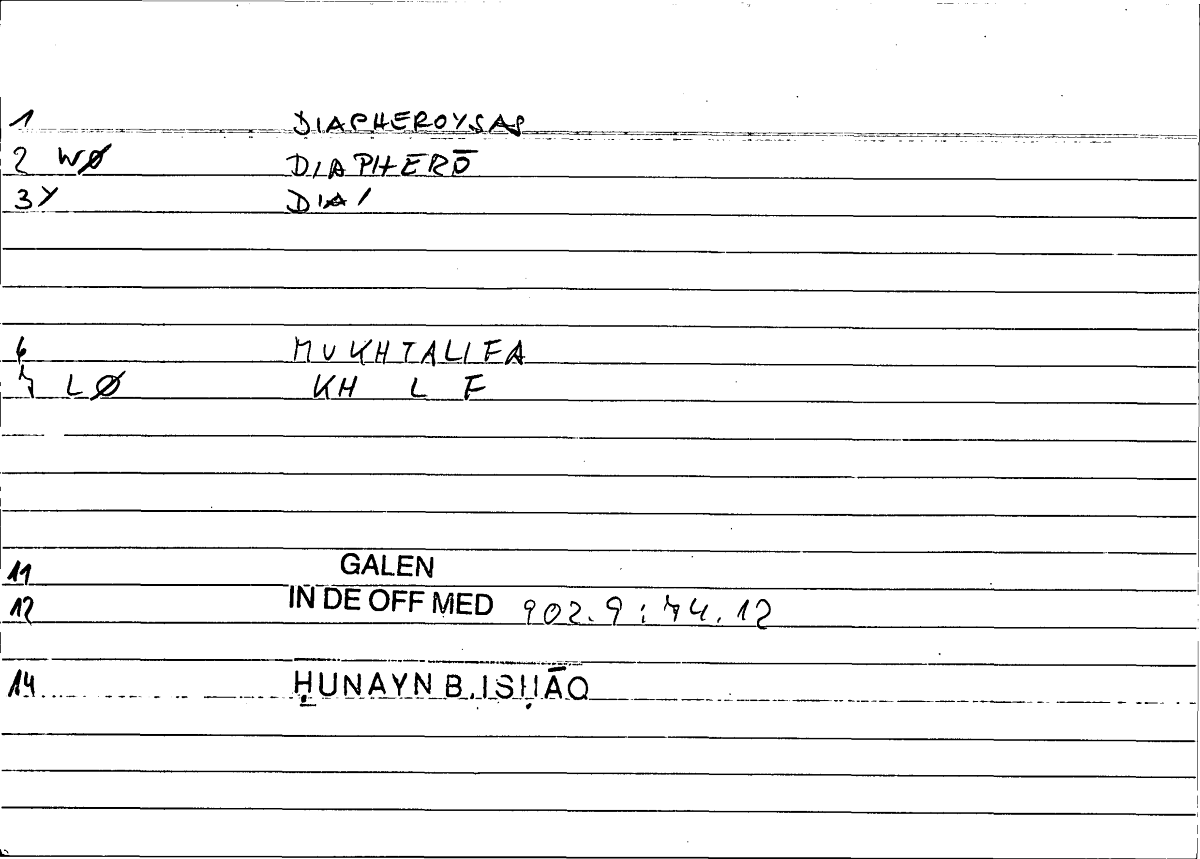 1 DIAPHEROYSAS
2 WØ DIAPHERŌ
3Y DIA/
6 MUKHTALIFA
7 LØ KH L F
11 GALEN
12 IN DE OFF MED 902.9 : 74.12
14 ḤUNAYN B. ISḤĀQ